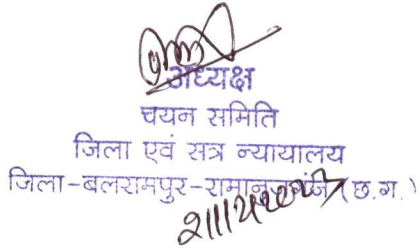 अध्यक्ष
चयन समिति
जिला एवं सत्र न्यायालय
जिला-बलरामपुर-रामानुजगंज (छ.ग.)